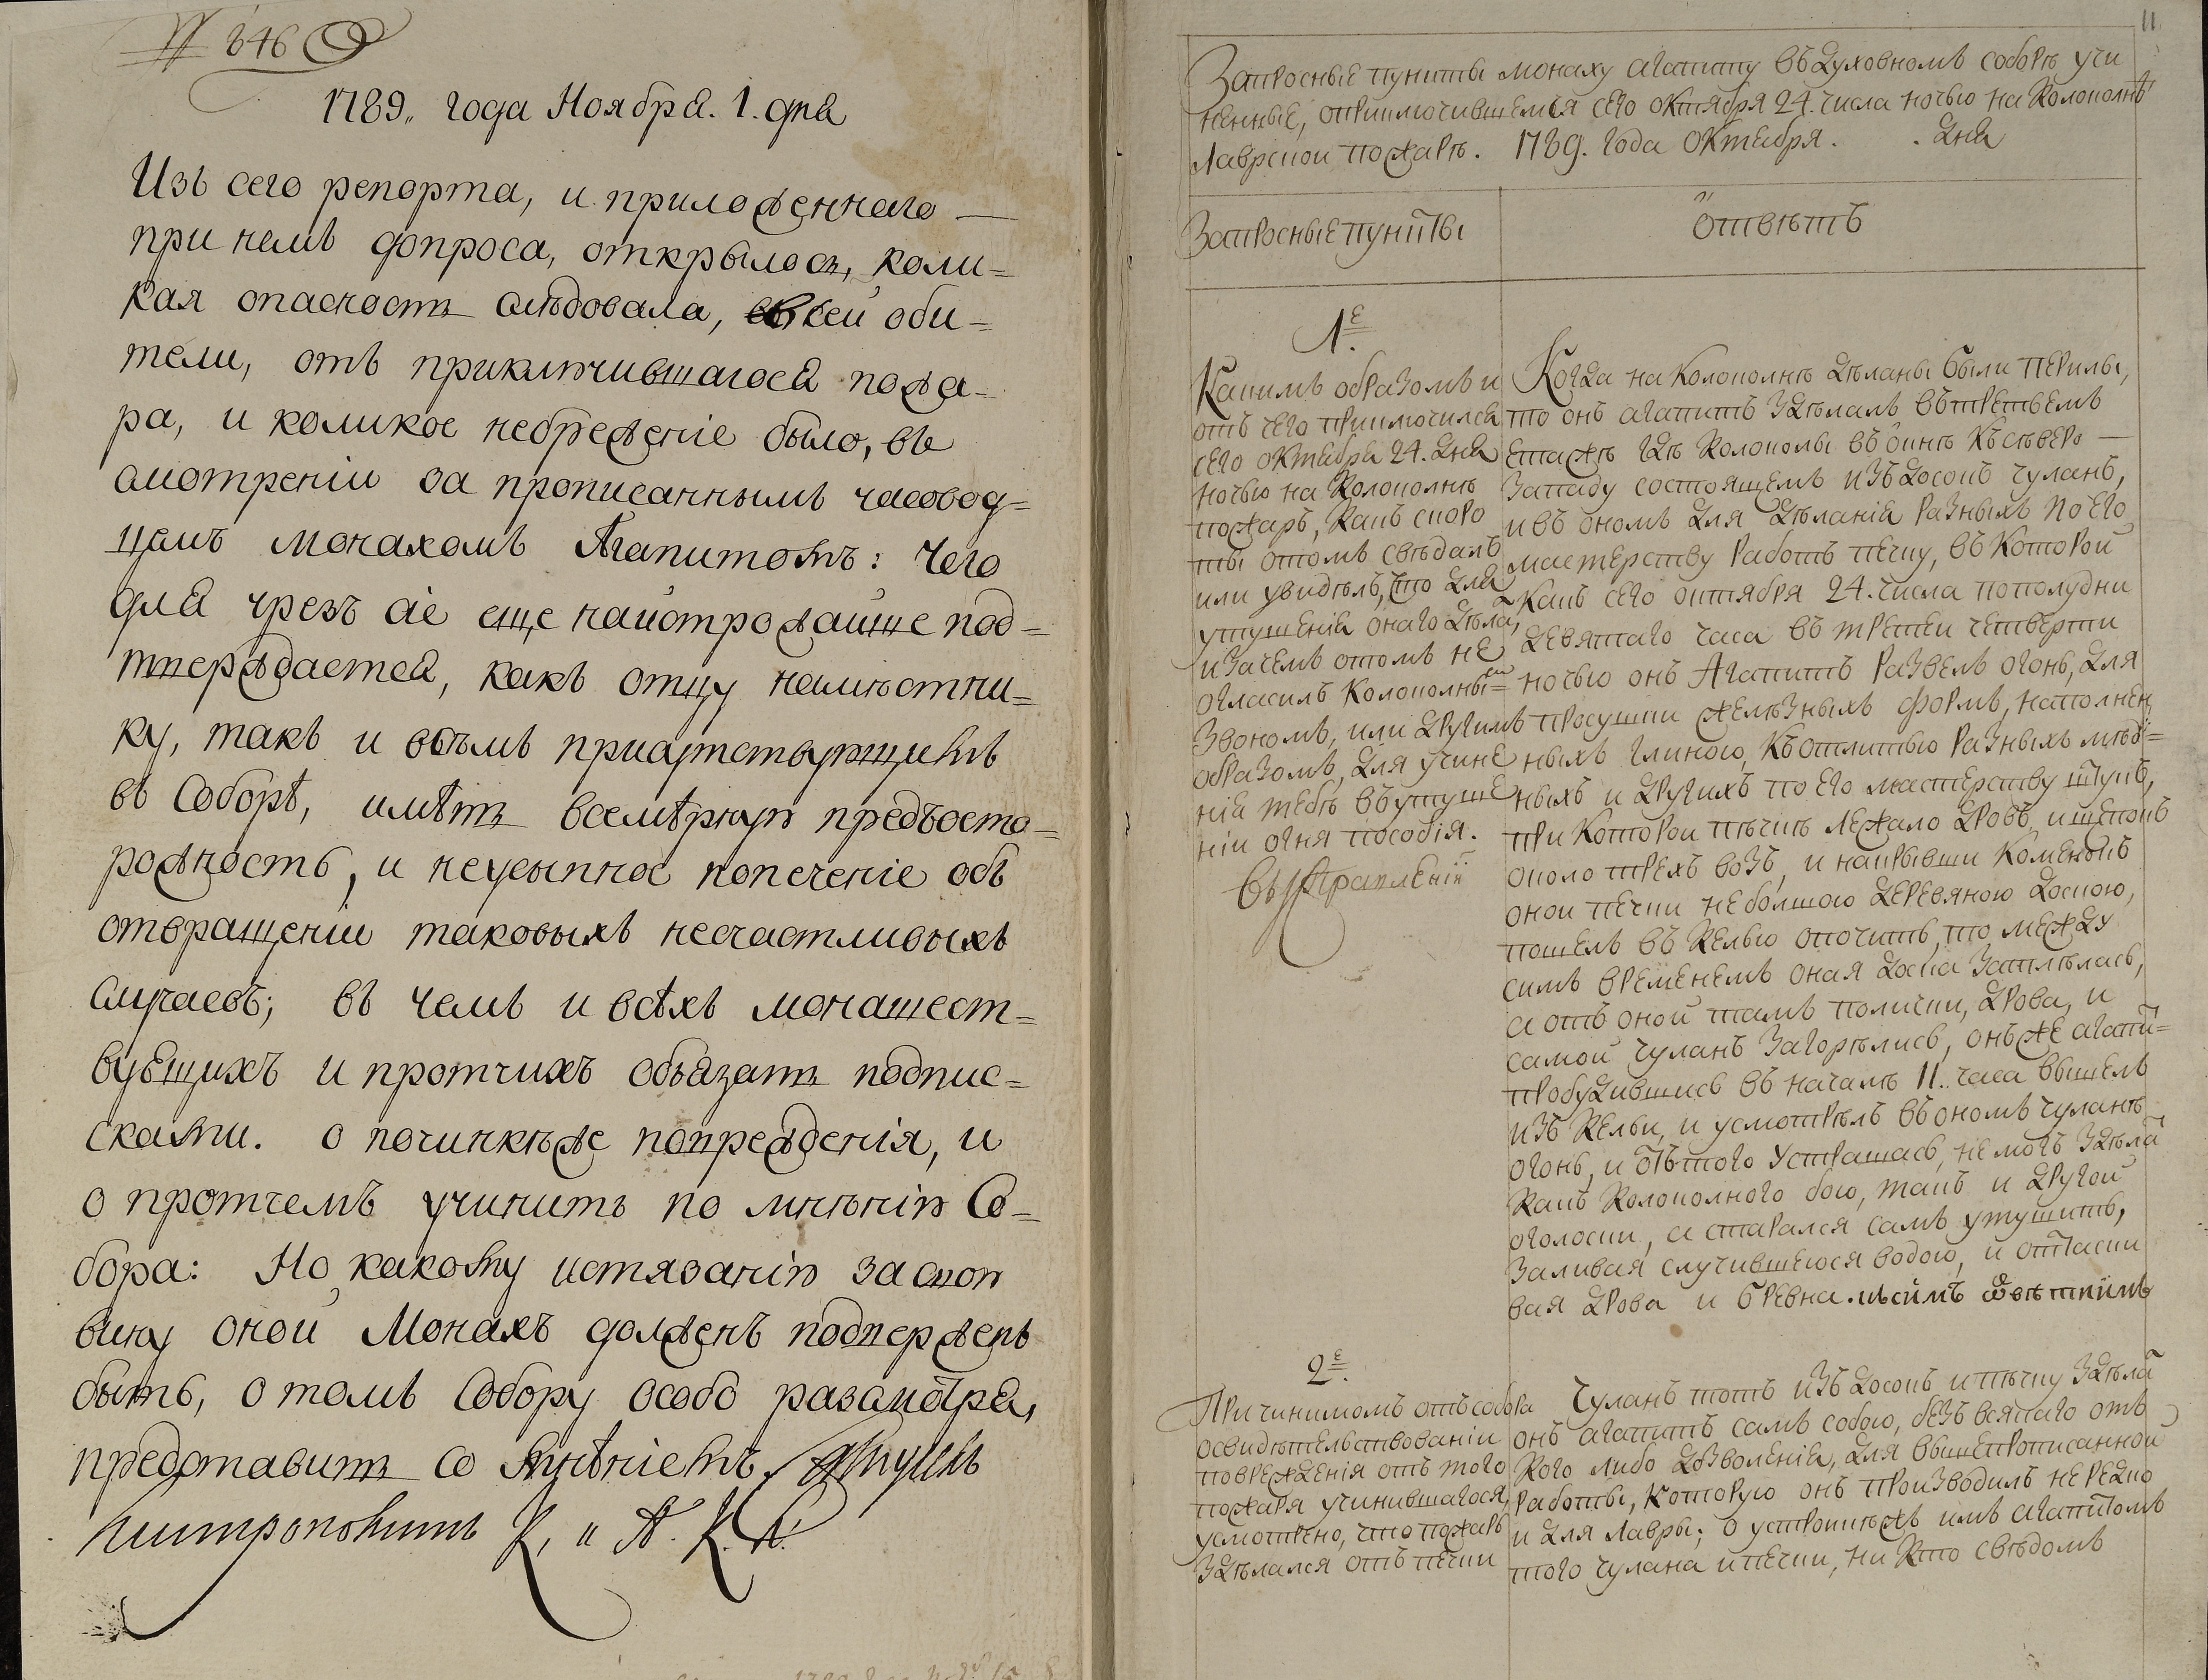 № 646
1789„ года Ноября. 1. дня
Изъ сего репорта, и приложеннаго —
при немъ допроса, открылось, коли=
кая опасность слѣдовала, всей оби=
тели, отъ приключившагося пожа=
ра, и коликое небреженіе было, въ
смотреніи за прописаннымъ часовод=
цемъ монахомъ Агапитомъ: Чего
для чрезъ сіе еще наистрожайше под=
тверждается, какъ отцу намѣстни=
ку, такъ и всѣмъ присутствующимъ
въ Соборѣ, имѣть всемѣрную предъосто=
рожность, и неусыпное попеченіе объ
отвращеніи таковыхъ несчастливыхъ
случаевъ; въ чемъ и всѣхъ монашест=
вующихъ и протчихъ обязать подпис=
сками. о починкѣже поврежденія, и
о протчемъ учинить по мнѣнію Со=
бора: Но какому истязанію за свою
вину оной Монахъ долженъ подверженъ
быть, о томъ Собору особо разсмотря,
представить со мнѣніемъ. Самуилъ
митрополитъ К. и А. К. Л.
11
Запросные пункты монаху агапиту въ духовномъ соборѣ учи
ненные, оприключившемся сего октября 24. числа ночью на колокольнѣ
Лаврской пожарѣ. 1789. года октября . . дня
Запросные пункты
отвѣтъ
1.е
Какимъ образомъ и
отъ чего приключился
сего октября 24. дня
ночью на колокольнѣ
пожаръ, какъ скоро
ты отомъ свѣдалъ
или увидѣлъ, что для
утушенія онаго дѣлалъ,
и зачемъ отомъ не
огласилъ колокольнымъ
звономъ, или другимъ
образомъ, для учине
нія тебѣ въ утуше
ніи огня пособія.
Когда на колокольнѣ дѣланы были перилы,
то онъ агапитъ здѣлалъ въ третьемъ
етажѣ гдѣ колоколы въ окнѣ къ сѣверо —
западу состоящемъ изъ досокъ чуланъ,
и въ ономъ для дѣланія разныхъ по его
мастерству работъ печку, въ которой
какъ сего октября 24. числа пополудни
девятаго часа въ третей четверти
ночью онъ Агапитъ развелъ огонь, для
просушки желѣзныхъ формъ, наполнен
ныхъ глиною, къ отлитью разныхъ мѣд=
ныхъ и другихъ по его мастерству штукъ,
при которой печкѣ лежало дровъ, и щепокъ
около трехъ возъ, и накрывши каменокъ
оной печки небольшою деревяною доскою,
пошелъ въ келью опочить, то между
симъ временемъ оная доска затлѣлась,
а отъ оной тамъ полички, дрова, и
самой чуланъ загорѣлись, онъже агапи=
пробудившись въ началѣ 11. часа вышелъ
изъ кельи, и усмотрѣлъ въ ономъ чуланѣ
огонь, и отъ того устрашась, не могъ здѣла
какъ колокольного бою, такъ и другой
оголоски, а старался самъ утушить,
заливая случившеюся водою, и оттаски
вая дрова и бревна.
2.е
При чинимомъ отъ собора
освидѣтельствованіи
поврежденія отъ того
пожара учинившагося,
усмотрено, что пожаръ
здѣлался отъ печки
Чуланъ тотъ изъ досокъ и печку здѣла
онъ агапитъ самъ собою, безъ всякаго отъ
кого либо дозволенія, для вышепрописанной
работы, которую онъ производилъ нередко
и для лавры; о устроикѣжъ имъ агапитомъ
того чулана и печки, ни кто свѣдомъ